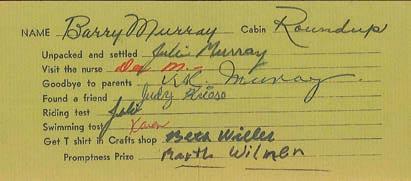 NAME Barry Murray Cabin Roundup
Unpacked and settled Julie Murray
Visit the nurse Dep M.
Goodbye to parents K.K. Murray.
Found a friend Judy
Riding test Julie
Swimming test Karen
Get T shirt in Crafts shop Beth Willes
Promptness Prize Barth Wilmen